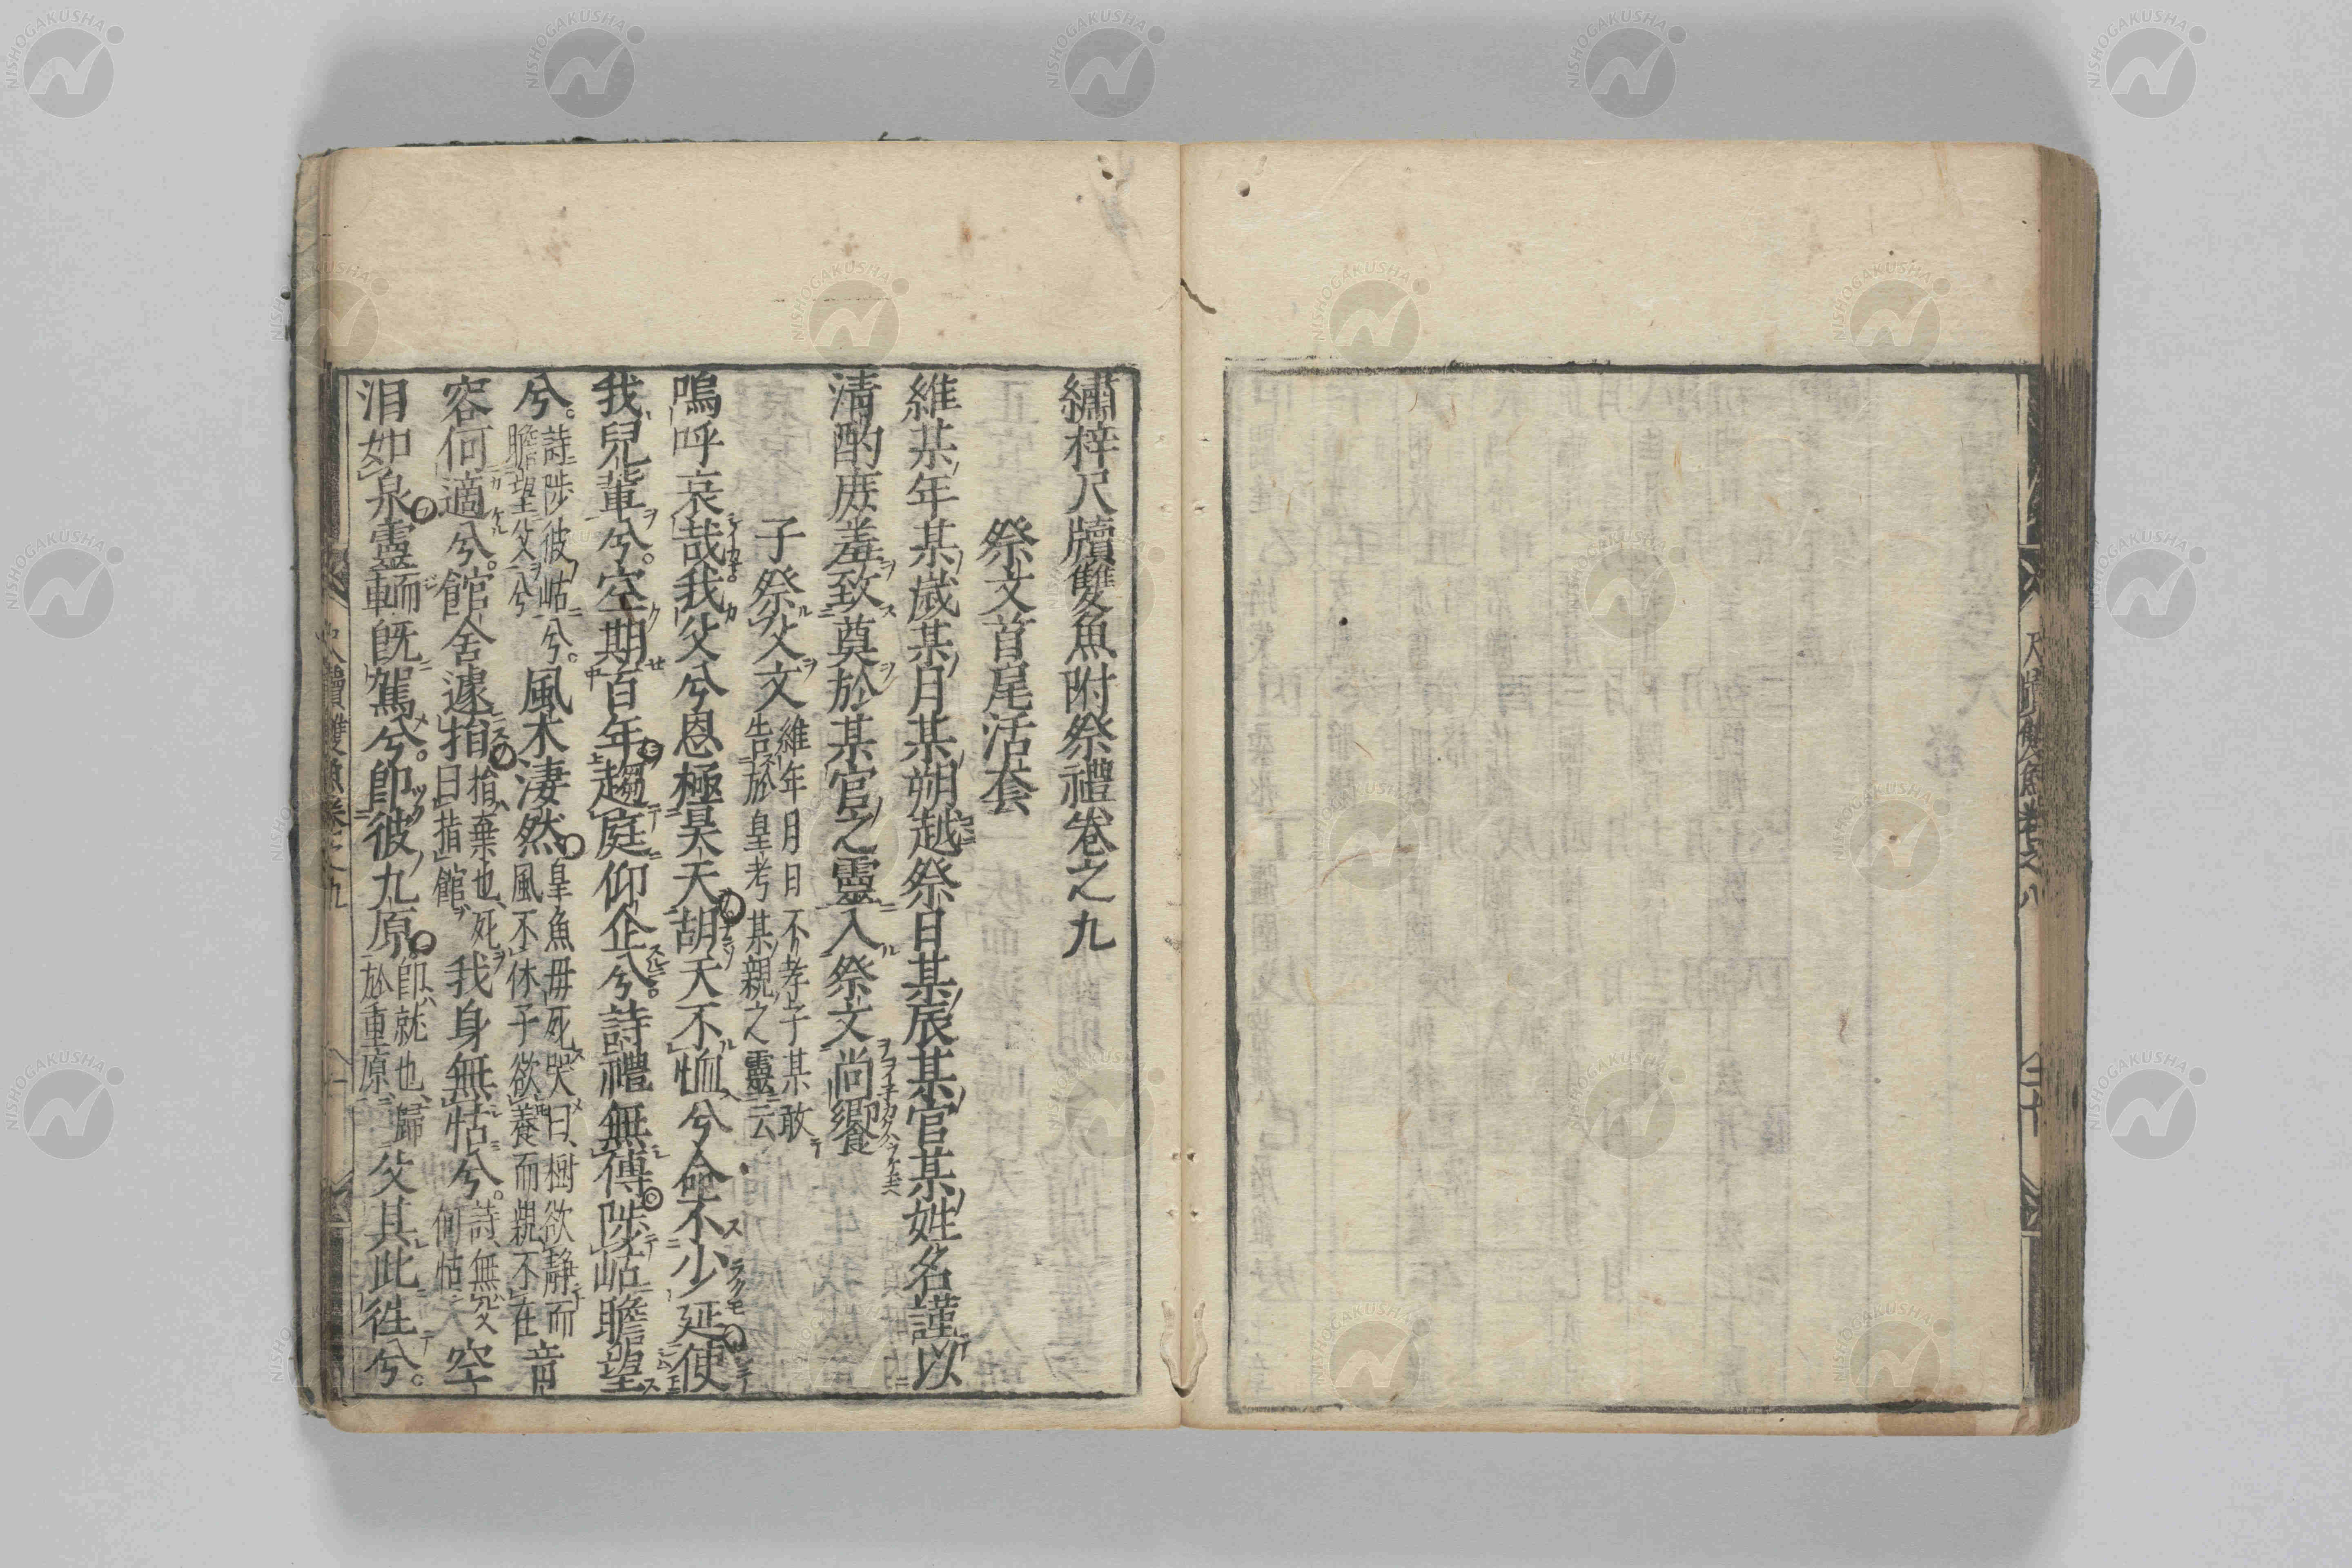 繡梓尺牘雙魚附祭禮卷之九
祭文首尾活套
維某年某歲某月某朔越祭日某辰某官某姓名謹以
清酌庶羞致奠於某官之靈入祭文尚饗
子祭父文
維年月日不孝子某敢
告於皇考某親之靈云
嗚呼哀哉我父兮恩極昊天胡天不恤兮命不少延使
我兒輩兮空期百年趨庭仰企兮詩禮無傳陟岵瞻望
兮
詩陟彼岵兮
瞻望父兮
風木淒然
皐魚毋死哭曰樹欲靜而
風不休子欲養而親不在
音
容何適兮館舍遽捐
捐棄也死
曰捐館
我身無怙兮
詩無父
何怙
空
泪如泉靈輀旣駕兮卽彼九原
卽就也歸
於重原
父其此徃兮
尺牘雙魚卷之九
尺牘雙魚卷之八
二十
NISHOGAKUSHA